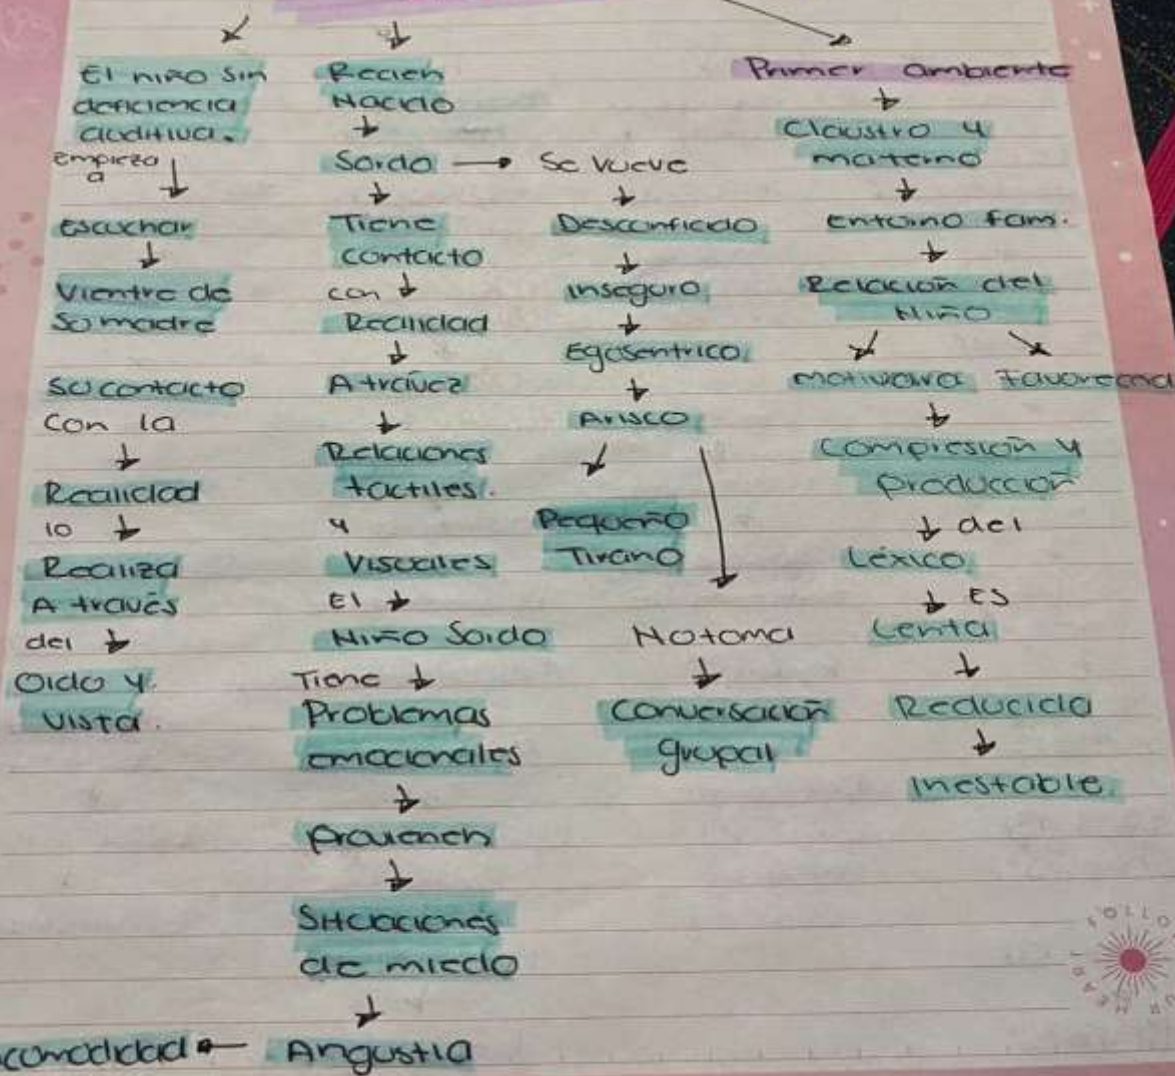 El niño sin
deficiencia
auditiva.
Empieza
a
Escuchar
Vientre de
Su madre
Su contacto
Con la
Realidad
lo
Realiza
A través
del
Oido y
vista.
Recien
Nacido
Sordo
Tiene
contacto
con
Realidad
A traivez
Relaciones
tactiles.
y
Visuales
El
Niño Sordo
Tiene
Problemas
emocionales
Provienen
Situaciones
de miedo
Angustia
comodidad
Se vueve
Desconfiado
Inseguro
Egosentrico
Arisco
Pequeño
Tirano
No toma
Conversación
grupal
Primer ambiente
Claustro y
materno
Entorno fam.
Relación del
Niño
motivara Favorecera
Compresión y
Producción
del
Léxico
Es
Lenta
Reducida
Inestable.